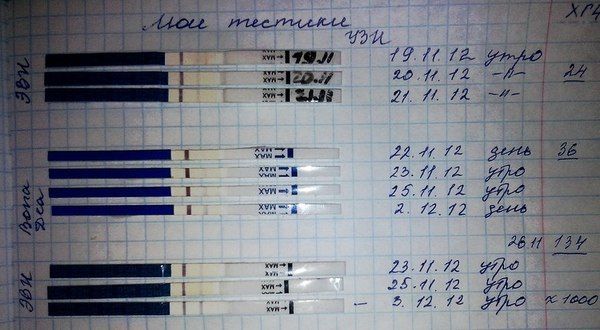 Мои тестики
УЗИ
ХГЧ
ЭВИ
MAX 19.11 19.11.12 утро
MAX 20.11 20.11.12 -"- 24
MAX 21.11 21.11.12 -"-
Вона
Деа
MAX 22.11.12 день 36
MAX 23.11.12 утро
MAX 25.11.12 утро
MAX 2.12.12 день
26 11 134
ЭВИ
MAX 23.11.12 утро
MAX 25.11.12 утро
MAX – 3.12.12 утро x1000